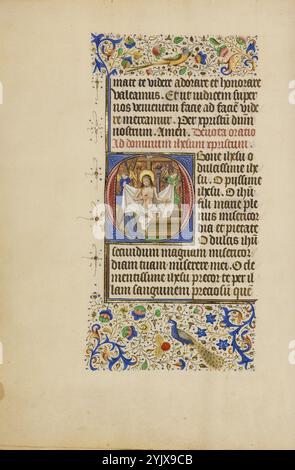 te videre adorare et honorare
valeamus. Et ut iudicem super
nos venientem facie ad faciē vide
re mereamur. Per xpristum dñm
nostrum. Amen. Devota oratio
ad dominum ihesum xpristum.
O Bone ihesu o
dulcissime ihe
su. O piissime
ihesu. O ihū
fili marie ple
nus misericor
dia et pietate
O dulcis ihū
secundum magnam misericor
diam tuam miserere mei. O cle
mentissime ihesu precor te per il
lum sanguinem preciosum que
alamy - 2YJX9CB